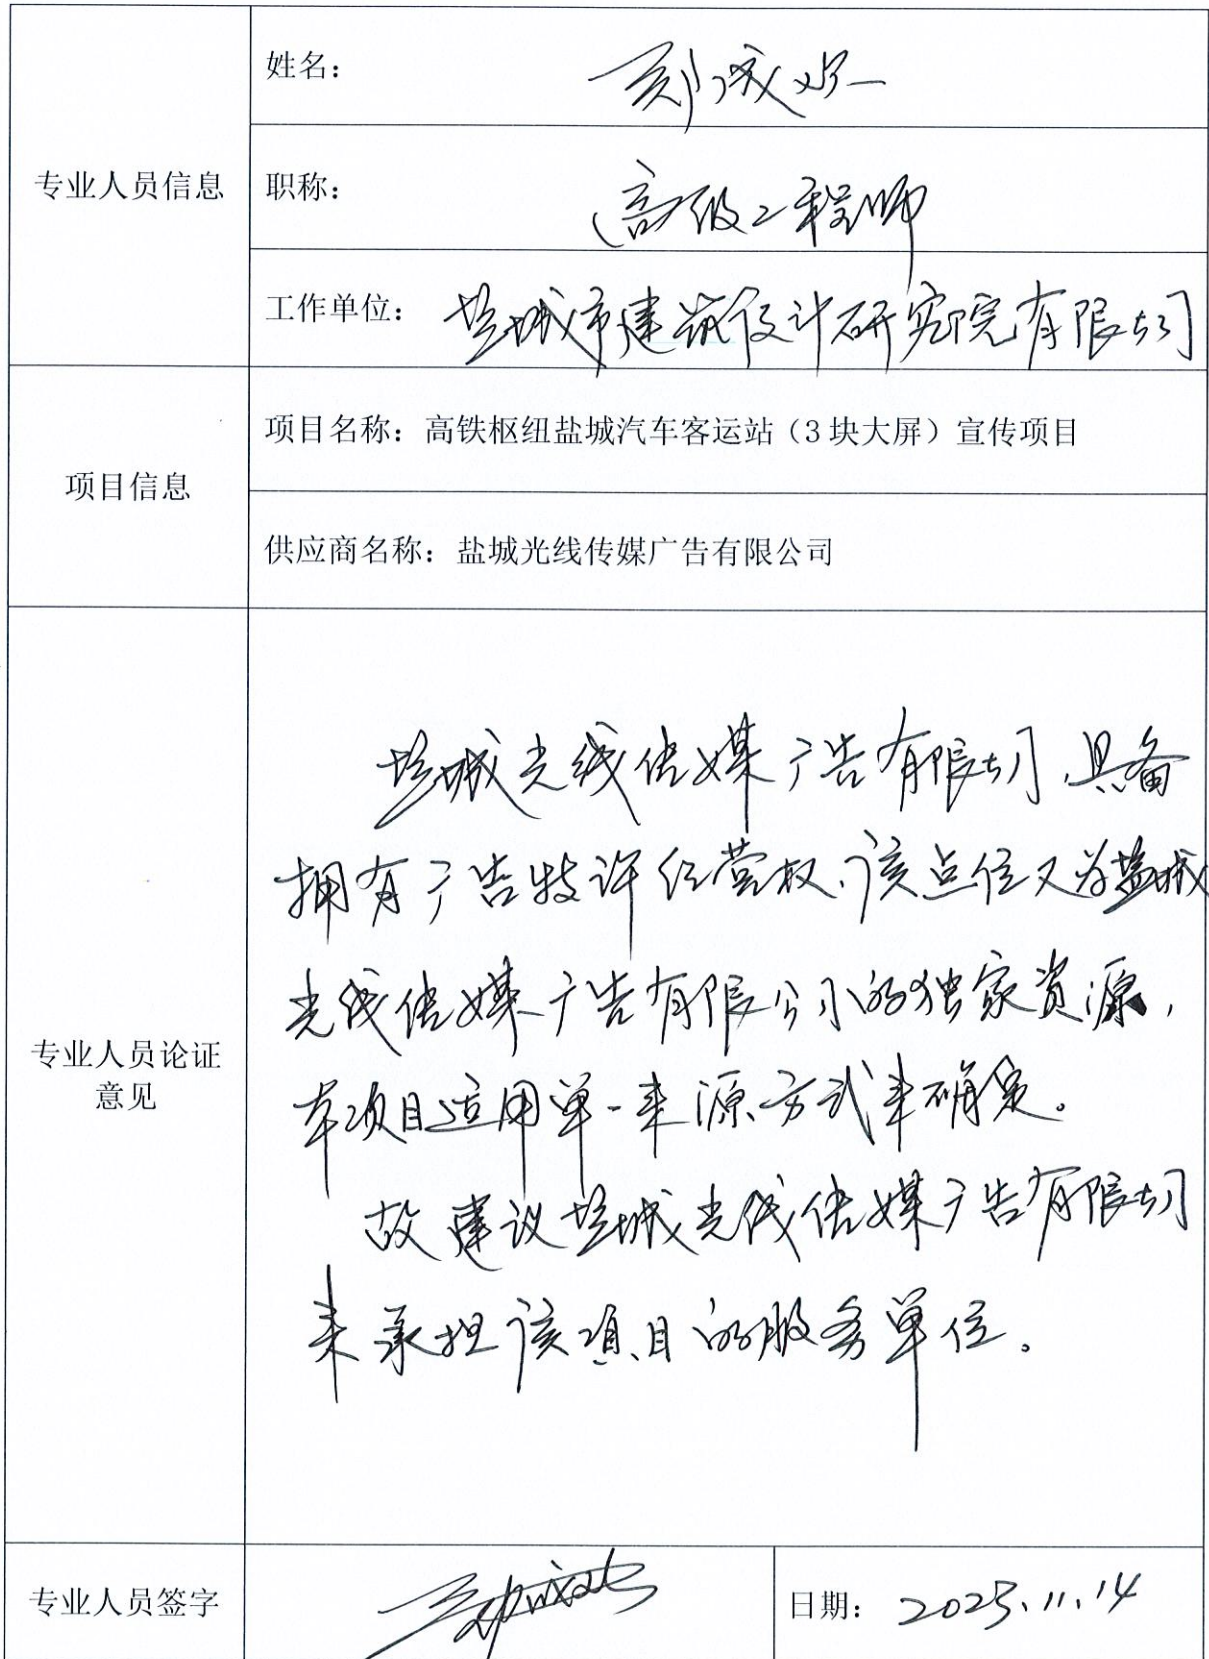 专业人员信息
姓名：
职称：
高级工程师
工作单位：
盐城市建筑设计研究院有限公司
项目信息
项目名称：高铁枢纽盐城汽车客运站（3块大屏）宣传项目
供应商名称：盐城光线传媒广告有限公司
专业人员论证
意见
盐城光线传媒广告有限公司，具备
拥有广告特许经营权、该点位又为盐城
光线传媒广告有限公司的独家资源，
本项目适用单一来源方式来确定。
故建议盐城光线传媒广告有限公司
来承担该项目的服务单位。
专业人员签字
日期：2025.11.14